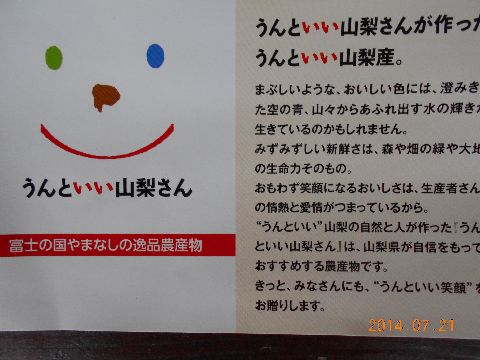 うんといい山梨さん
富士の国やまなしの逸品農産物
うんといい山梨さんが作った
うんといい山梨産。
まぶしいような、おいしい色には、澄みき
た空の青、山々からあふれ出す水の輝きが
生きているのかもしれません。
みずみずしい新鮮さは、森や畑の緑や大地
の生命力そのもの。
おもわず笑顔になるおいしさは、生産者さん
の情熱と愛情がつまっているから。
“うんといい”山梨の自然と人が作った『うん
といい山梨さん』は、山梨県が自信をもって
おすすめする農産物です。
きっと、みなさんにも、“うんといい笑顔”を
お贈りします。
2014.07.21